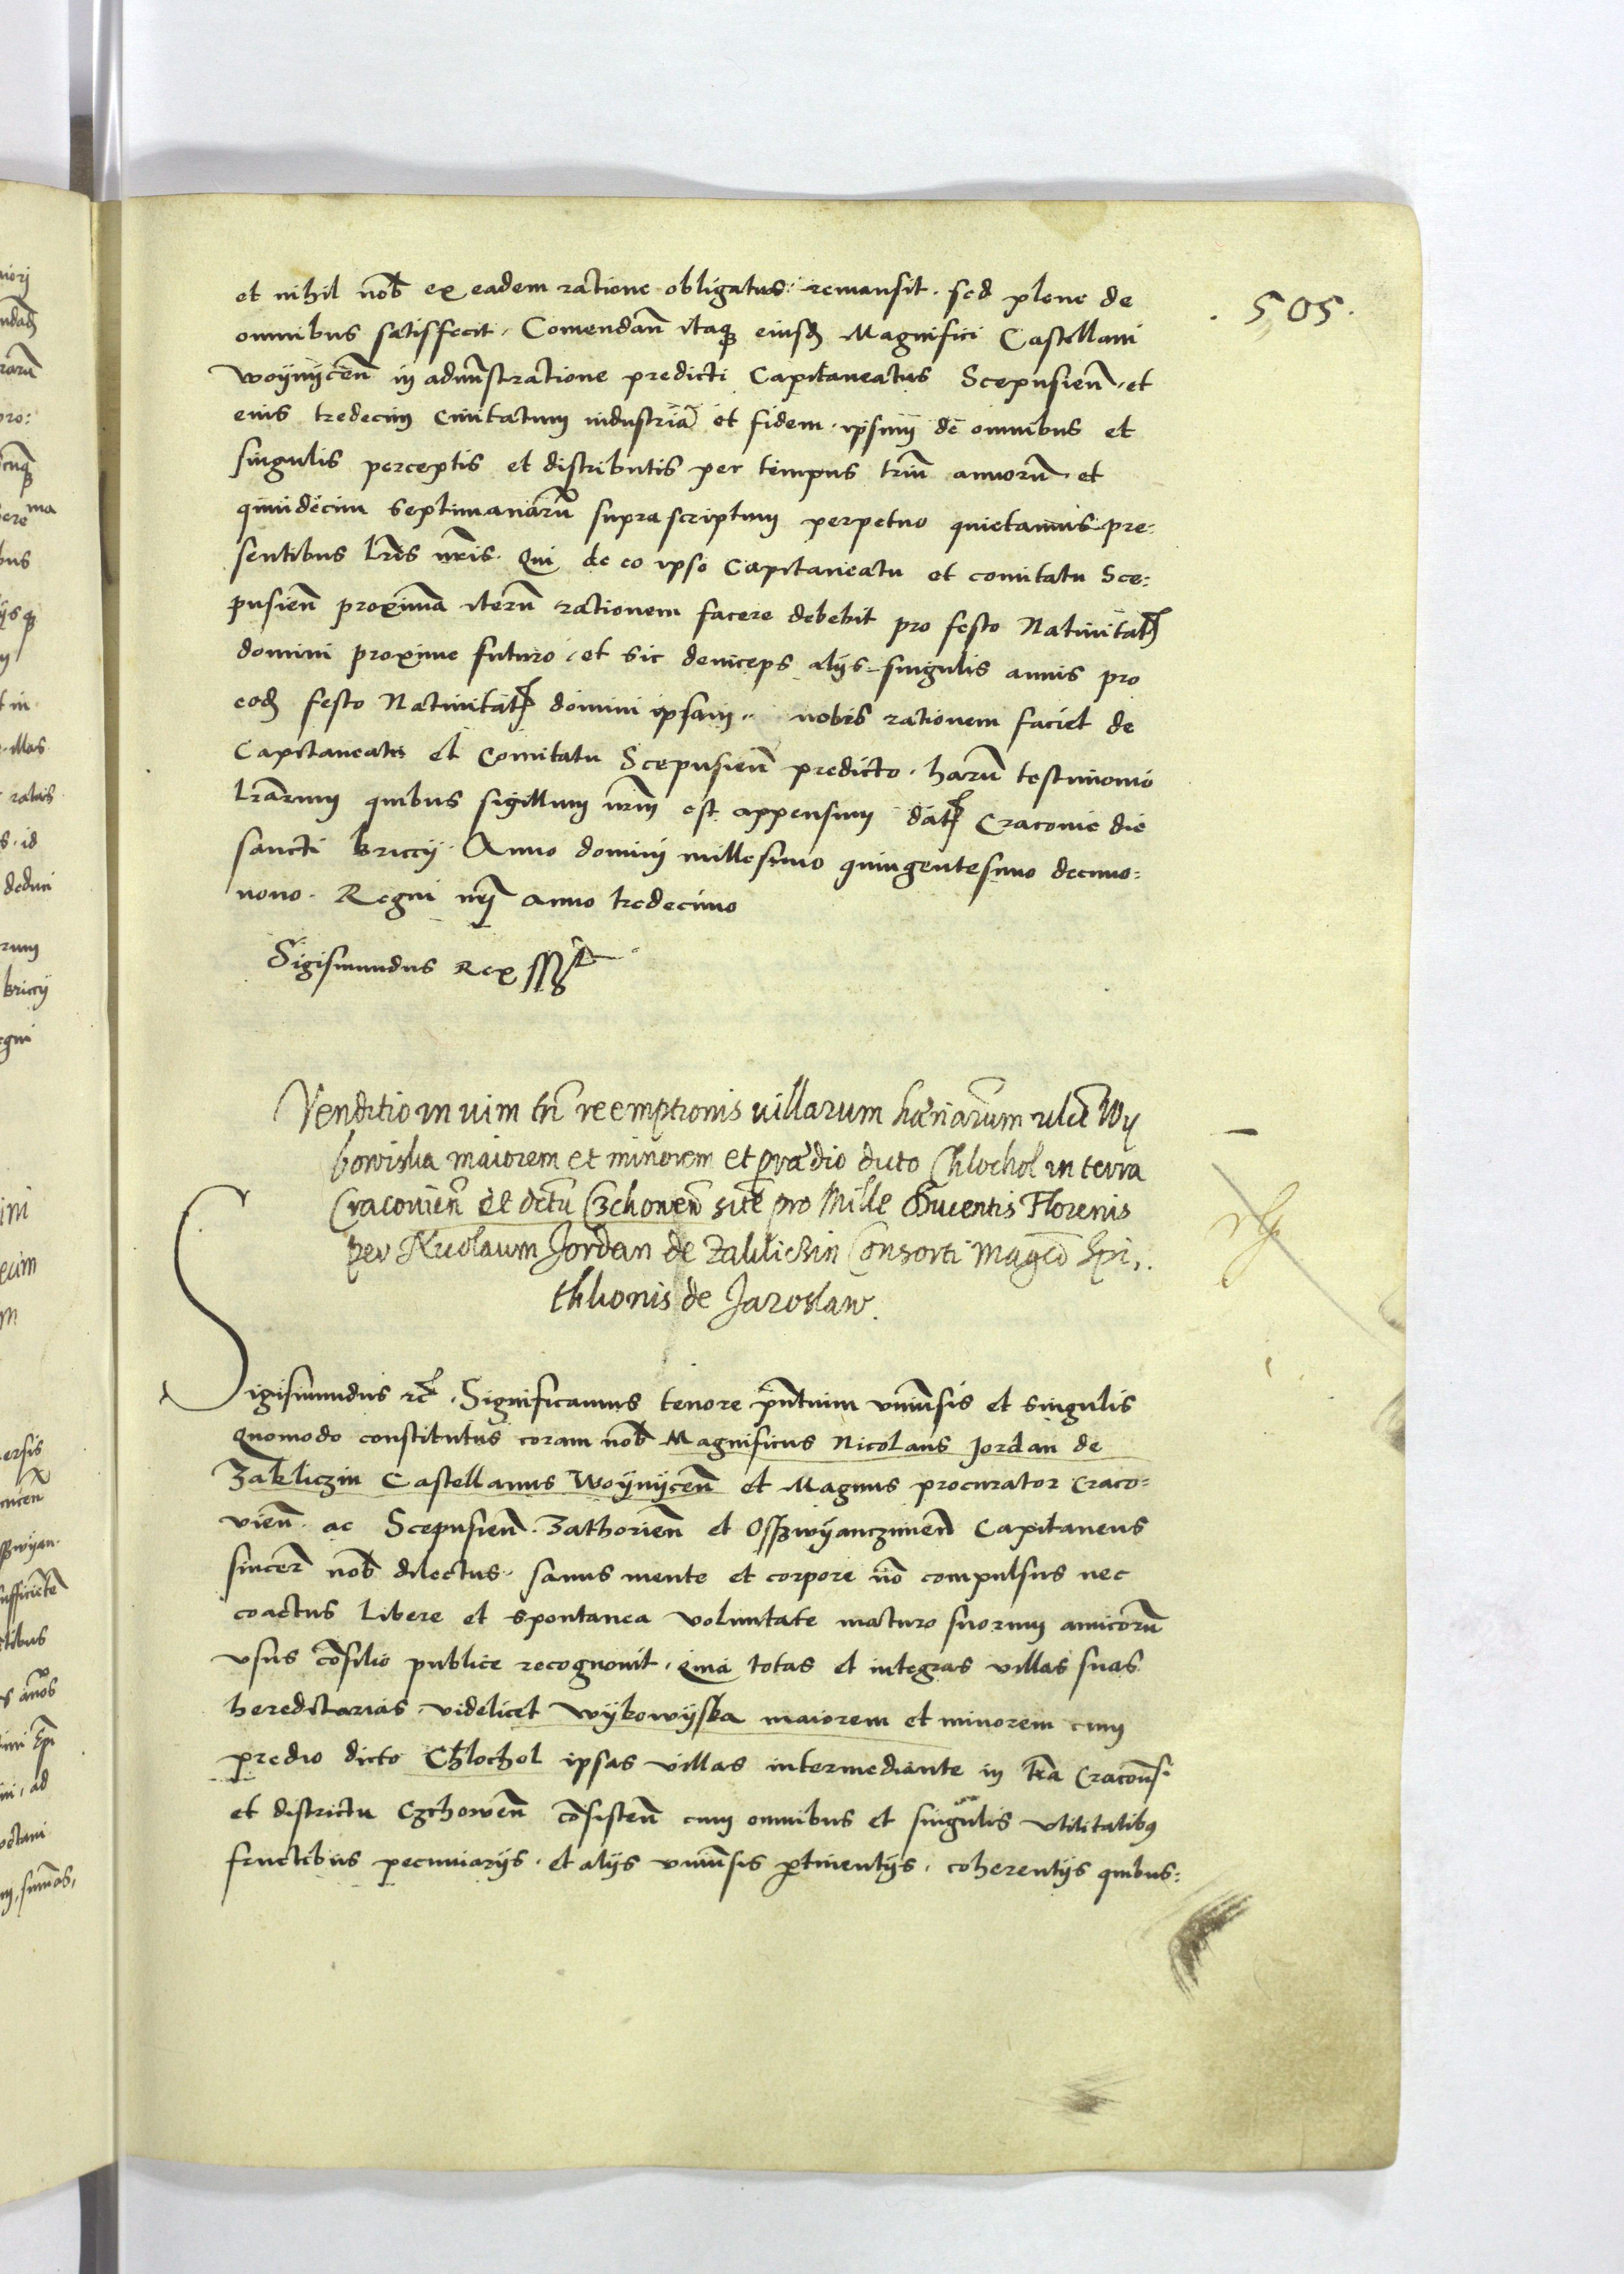 . 505 .
et nihil nob̃ ex eadem ratione obligatus remansit . sed plene de
omnibus satisfecit . Comendan̄ itaqꝫ eiusd̃ Magnifici Castellani
Woynycen̄ in admĩstratione predicti Capitaneatus Scepusien̄ et
eius tredecim Civitatum industriã et fidem . ipsum de omnibus et
singulis perceptis et distributis per tempus triũ annorũ . et
quindecim septimanarũ suprascriptum perpetuo quietamus pre:
sentibus lr̃is nr̃is . Qui de eo ipso Capitaneatu et comitatu Sce:
pusien̄ proxima iterũ rationem facere debebit pro festo Nativitat̃
domini proxime futuro . et sic deinceps alijs singulis annis pro
eod̃ festo Nativitat̃ domini ipsam nobis rationem faciet de
Capitaneatu et Comitatu Scepusien̄ predicto . harũ testimonio
lr̃arum quibus sigillum nr̃m est appensum dat̃ Cracovie die
sancti briccij . Anno domini millesimo quingentesimo decimo:
nono . Regni nr̃j anno tredecimo
Sigismundus Rex sst
Venditio in vim tñ reemptionis villarum hæriarum vlct Wy
kowiska maiorem et minorem et prædio dicto Chlochol in terra
Cracovien̄ et dctu Czchowen̄ site pro Mille Ducentis Florenis
per Nicolaum Jordan de Zakliczin Consorti Magco Spi,
thkonis de Jaroslaw .
Sigismundus rc̃ . Significamus tenore pñtium vniũsis et singulis
Quomodo constitutus coram nob̃ Magnificus Nicolaus Jordan de
Zakliczin Castellanus Woynycen̄ et Magnus procurator Craco:
vien̄ ac Scepusien̄ . Zathorien̄ et Osswyanczimen̄ Capitaneus
sincer̃ nob̃ dilectus . sanus mente et corpore nõ compulsus nec
coactus libere et spontanea voluntate maturo suorum amicorũ
vsus cõsilio publice recognovit . Quia totas et integras villas suas
hereditarias videlicet Wykowyska maiorem et minorem cum
predio dicto Chlochol ipsas villas intermediante in tr̃a Cracoviñsi
et districtu Czchowen̄ cõsisten̄ cum omnibus et singulis vtilitatibꝰ
fructibus pecuniarijs . et alijs vniũsis ꝑtinentijs . coherentijs quibus: